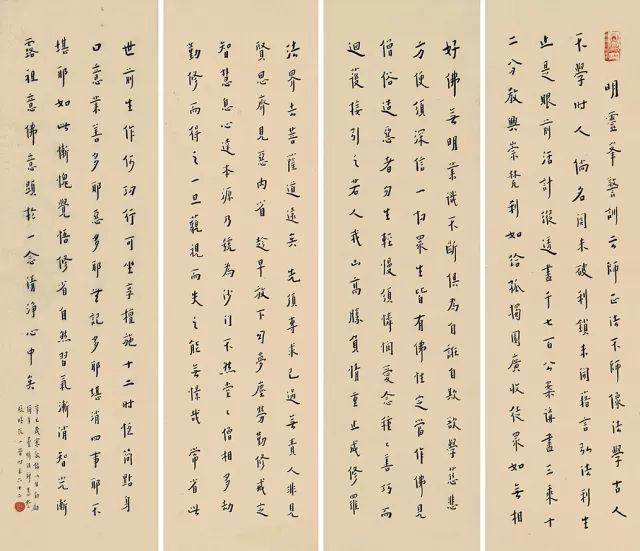 明靈峯警訓云師正法不師像法學古人
不學时人倘名関未破利鎖未開藉言弘法利生
止是眼前活計縱透盡千七百公案講盡三乘十
二分教興崇梵刹如給孤獨園廣收徒眾如無相
好佛無明業識不斷俱為自誑自欺欲學慈悲
方便須深信一切眾生皆有佛性定當作佛見
僧俗造惡者勿生輕慢須憐憫愛念種〻善巧而
迴護接引之若人我山高勝負情重止成修羅
法界去菩薩道遠矣先須專求己過毋責人非見
賢思齊見惡內省趁早放下勿夢塵勞勤修戒定
智慧息心達本源乃號為沙门不然堂〻僧相多劫
勤修而得之一旦藐視而失之能無懍哉 常省此
世前生作何功行可坐享檀施十二时位簡點身
口意業善多耶惡多耶無記多耶堪消四事耶不
堪耶如此慚愧覺悟修省自然習氣漸消智光漸
露祖意佛意顯於一念清淨心中矣